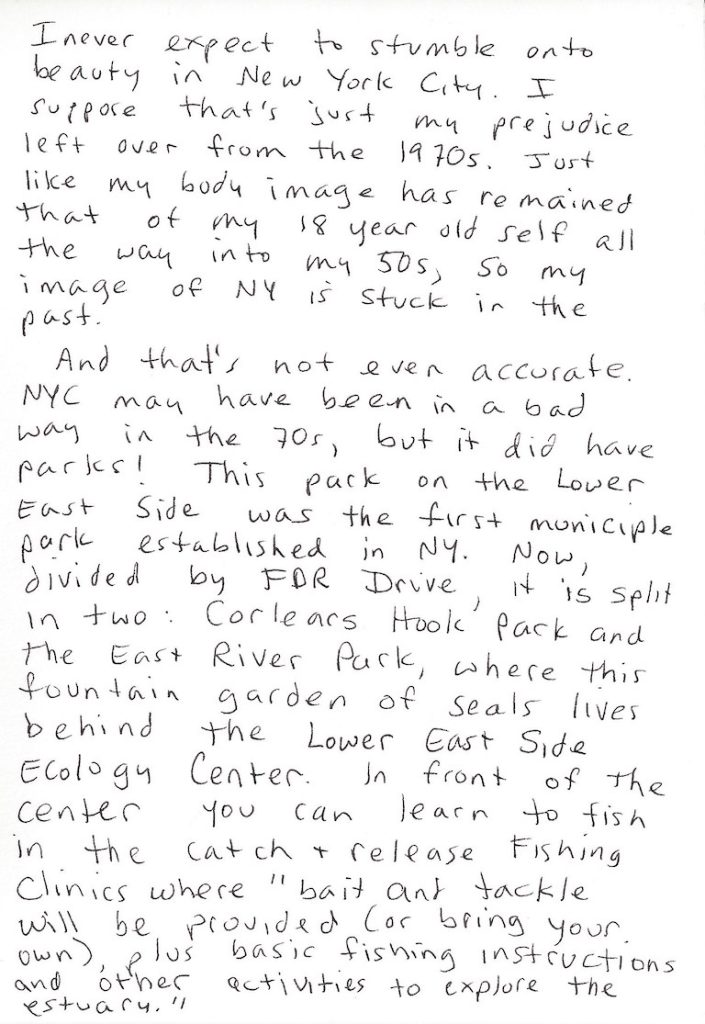 I never expect to stumble onto
beauty in New York City. I
suppose that's just my prejudice
left over from the 1970s. Just
like my body image has remained
that of my 18 year old self all
the way into my 50s, so my
image of NY is stuck in the
past.
And that's not even accurate.
NYC may have been in a bad
way in the 70s, but it did have
parks! This park on the Lower
East Side was the first municiple
park established in NY. Now,
divided by FDR Drive, it is split
in two: Corlears Hook Park and
the East River Park, where this
fountain garden of seals lives
behind the Lower East Side
Ecology Center. In front of the
center you can learn to fish
in the catch + release Fishing
Clinics where "bait ant tackle
will be provided (or bring your
own), plus basic fishing instructions
and other activities to explore the
estuary."